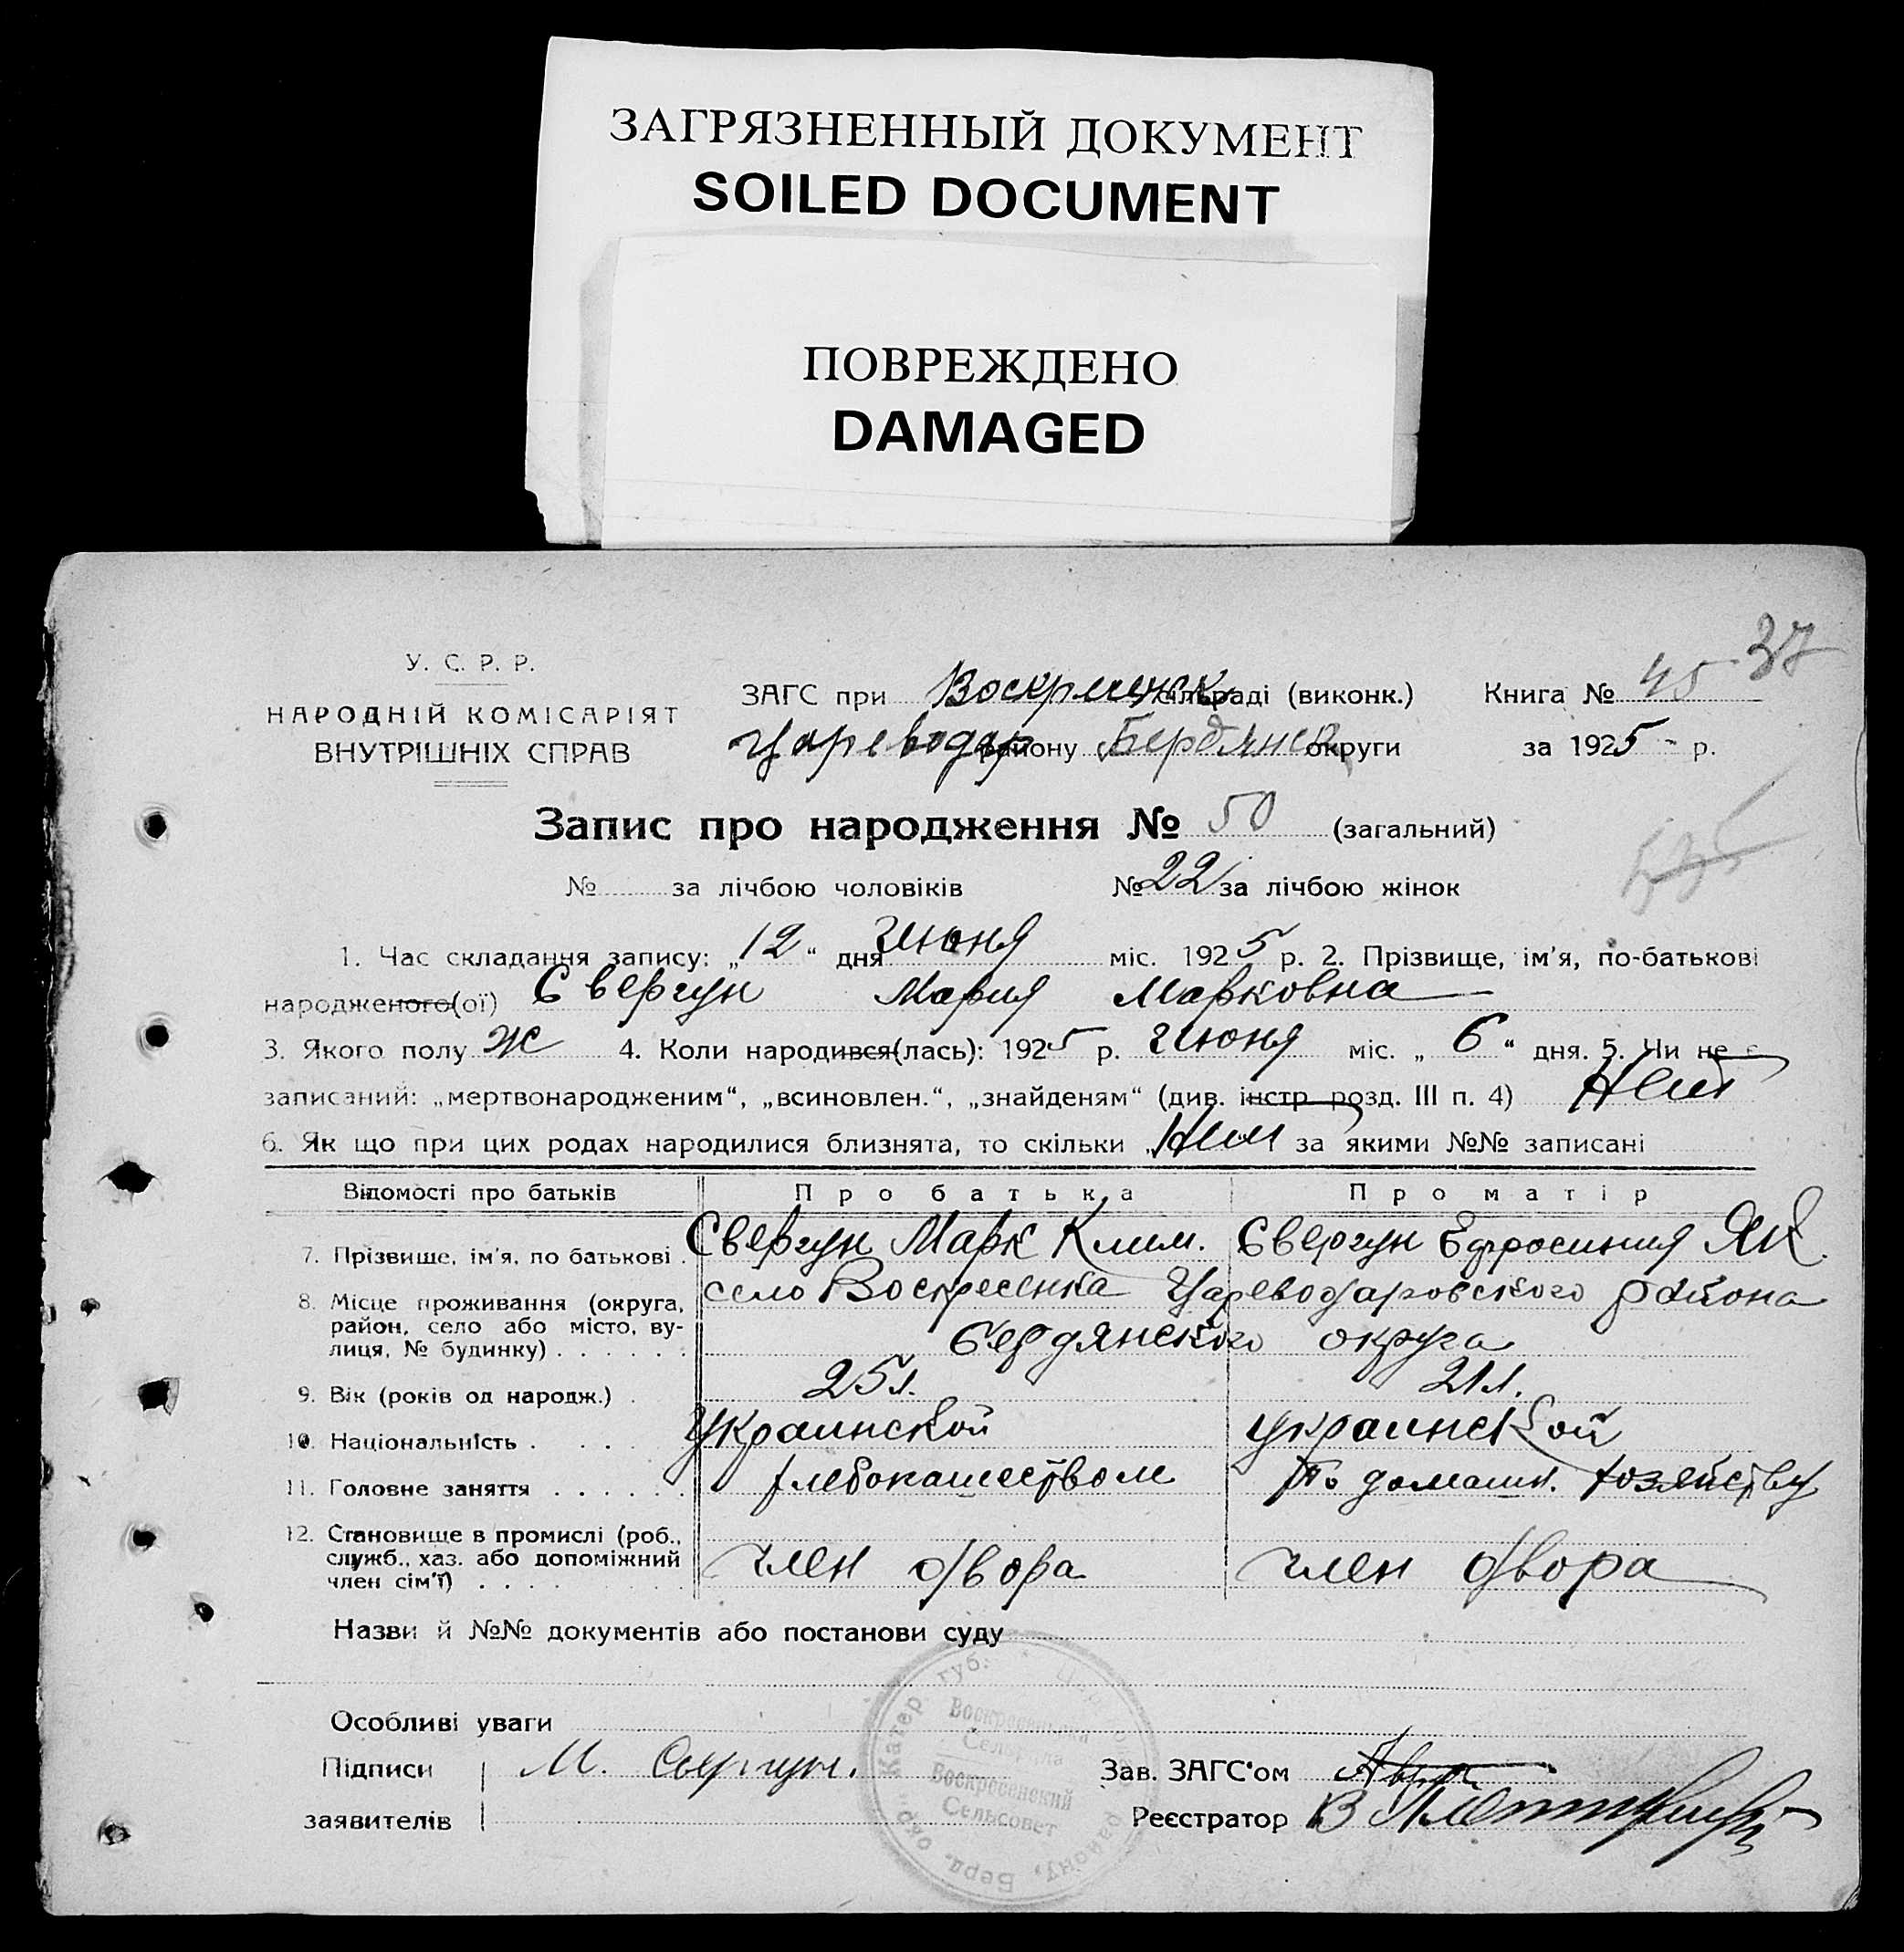 ЗАГРЯЗНЕННЫЙ ДОКУМЕНТ
SOILED DOCUMENT
ПОВРЕЖДЕНО
DAMAGED
37
У. С. Р. Р.
НАРОДНІЙ КОМІСАРІЯТ
ВНУТРІШНІХ СПРАВ
ЗАГС при Воскресенск сільраді (виконк.) Книга № 45
Цареводар району Бердянск округи за 1925 р.
Запис про народження № 50 (загальний)
№ за лічбою чоловіків № 22 за лічбою жінок
1. Час складання запису: „12“ дня Июня міс. 1925 р. 2. Прізвище, ім'я, по-батькові
народженого(ої) Свергун Мария Марковна
3. Якого полу Ж 4. Коли народився(лась): 1925 р. Июня міс. „6“ дня. 5. Чи не є
записаний: „мертвонародженим“, „всиновлен.“, „знайденям“ (див. інстр. розд. III п. 4) Нет
6. Як що при цих родах народилися близнята, то скільки Нет за якими №№ записані
Відомості про батьків Про батька Про матір
7. Прізвище, ім'я, по батькові . Свергун Марк Клим. Свергун Ефросиния Як.
8. Місце проживання (округа, район, село або місто, вулиця, № будинку) . . . . . . село Воскресенка Цареводаровского района
Бердянского округа
9. Вік (років од народж.) . 25 л. 21 л.
10. Національність . . . . Украинской украинской
11. Головне заняття . . . . . . хлебопашеством По домашн. хозяйству
12. Становище в промислі (роб., служб., хаз. або допоміжний член сім'ї) . . . . член двора член двора
Назви й №№ документів або постанови суду
Особливі уваги
Підписи М. Свергун. Зав. ЗАГС'ом
заявителів Реєстратор В
Катер. губ.
Воскресенська
Сельрада
Воскресенский
Сельсовет
Берд. окр. району,